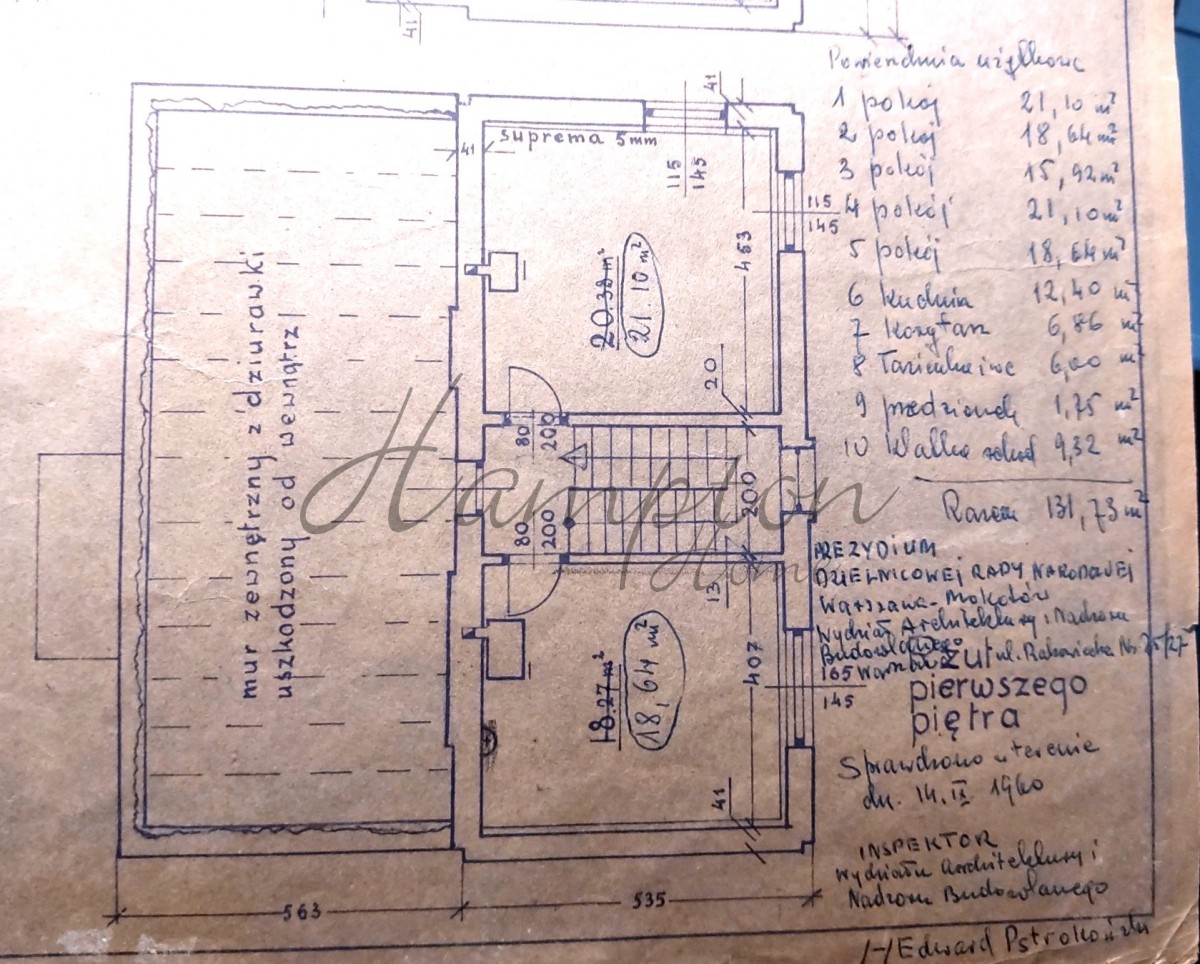 41
Powierzchnia użytkowa
1 pokój 21,10 m²
2 pokój 18,64 m²
3 pokój 15,92 m²
4 pokój 21,10 m²
5 pokój 18,64 m²
6 kuchnia 12,40 m²
7 korytarz 6,86 m²
8 Łazienka i wc 6,00 m²
9 przedsionek 1,75 m²
10 Walka schod 9,32 m²
Razem 131,73 m²
41
suprema 5mm
41
115
145
115
145
453
20.38 m²
21.10 m²
20
mur zewnętrzny z dziurawki
uszkodzony od wewnątrz
80
200
80
200
200
Hampton
Home
13
18.27 m²
18,64 m²
407
165
145
41
PREZYDIUM
DZIELNICOWEJ RADY NARODOWEJ
Warszawa-Mokotów
Wydział Architektury i Nadzoru
Budowlanego
Warszawa ul. Rakowiecka Nr 25/27
rzut
pierwszego
piętra
Sprawdzono w terenie
dn. 14.II 1960
INSPEKTOR
Wydziału Architektury i
Nadzoru Budowlanego
/-/ Edward Pstrokoński
563
535